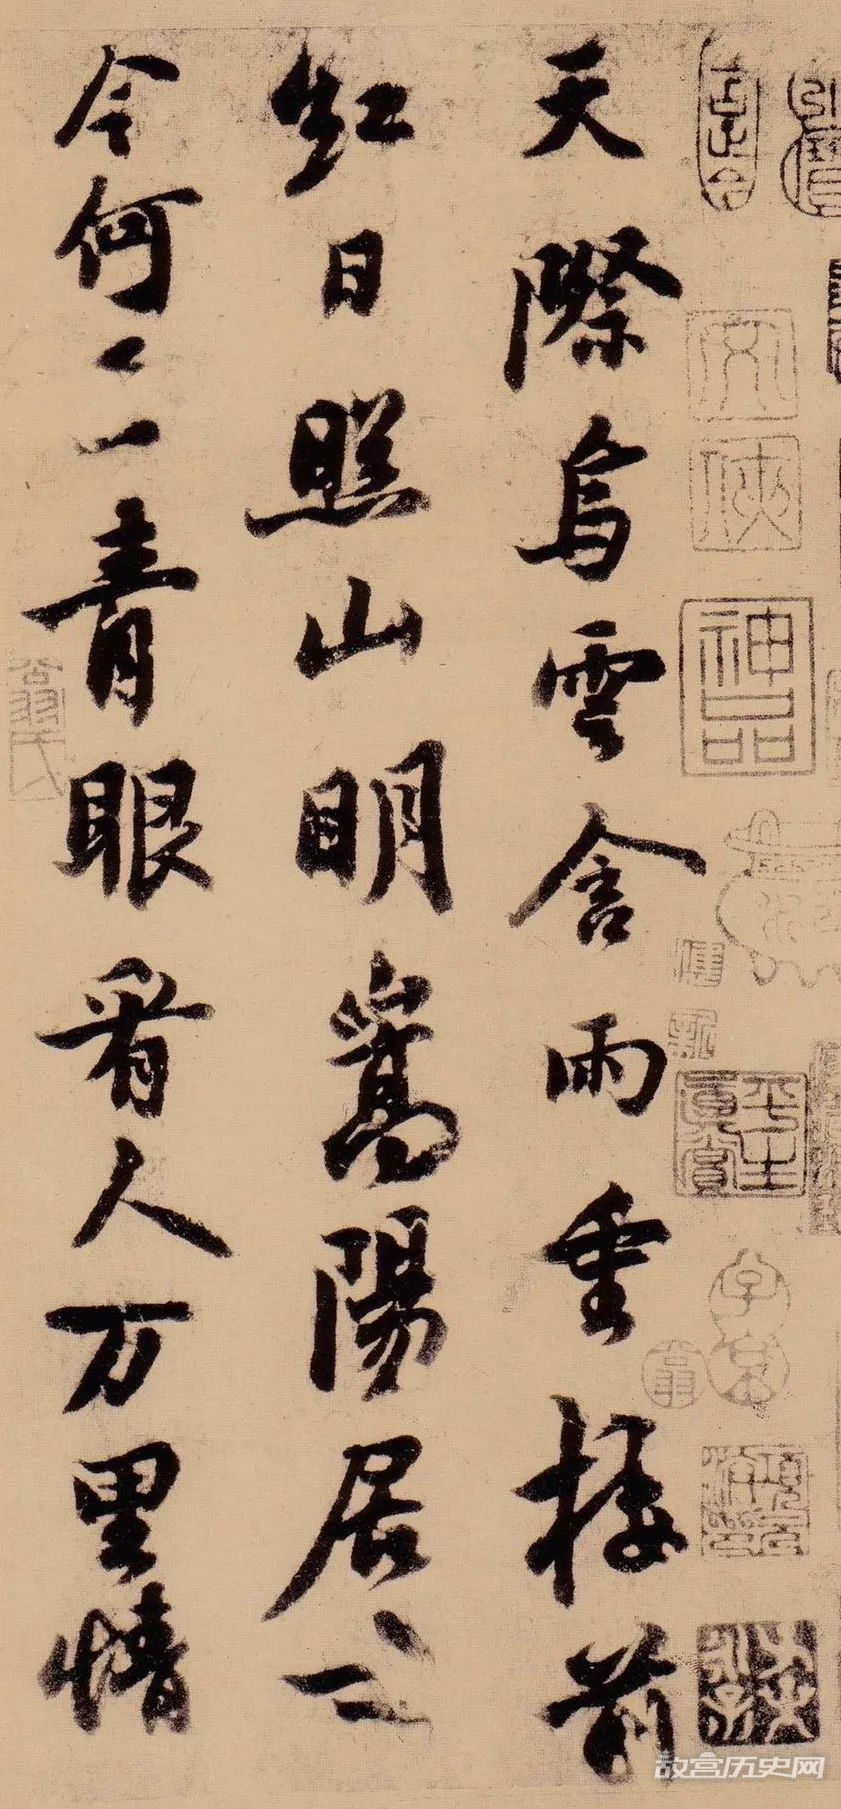 天際烏雲含雨重樓前
紅日照山明嵩陽居士
今何在青眼看人万里情
神品
翁氏
故宫历史网